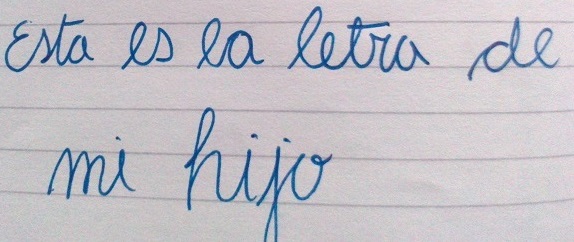 Esta es la letra de
mi hijo